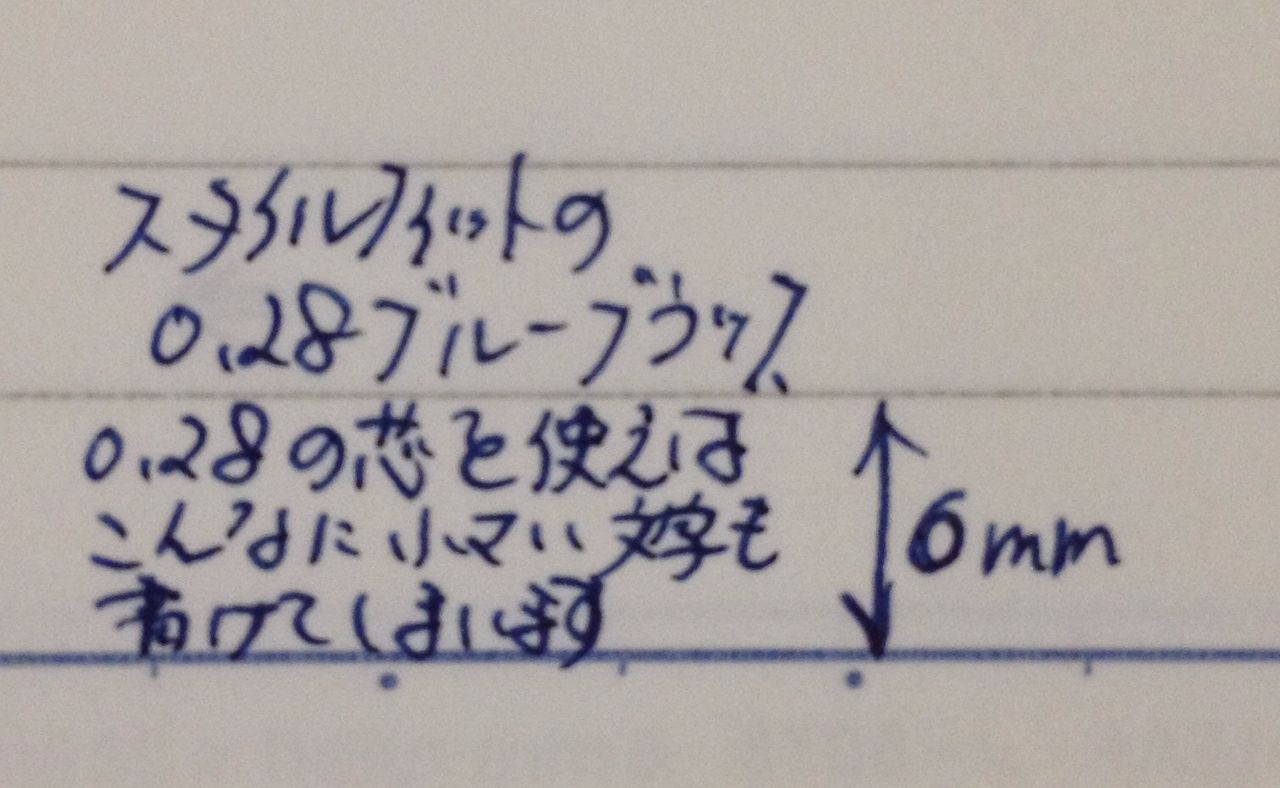 スタイルフィットの
0.28ブルーブラック
0.28の芯を使えば
こんなに小さい文字も
書けてしまいます
6mm